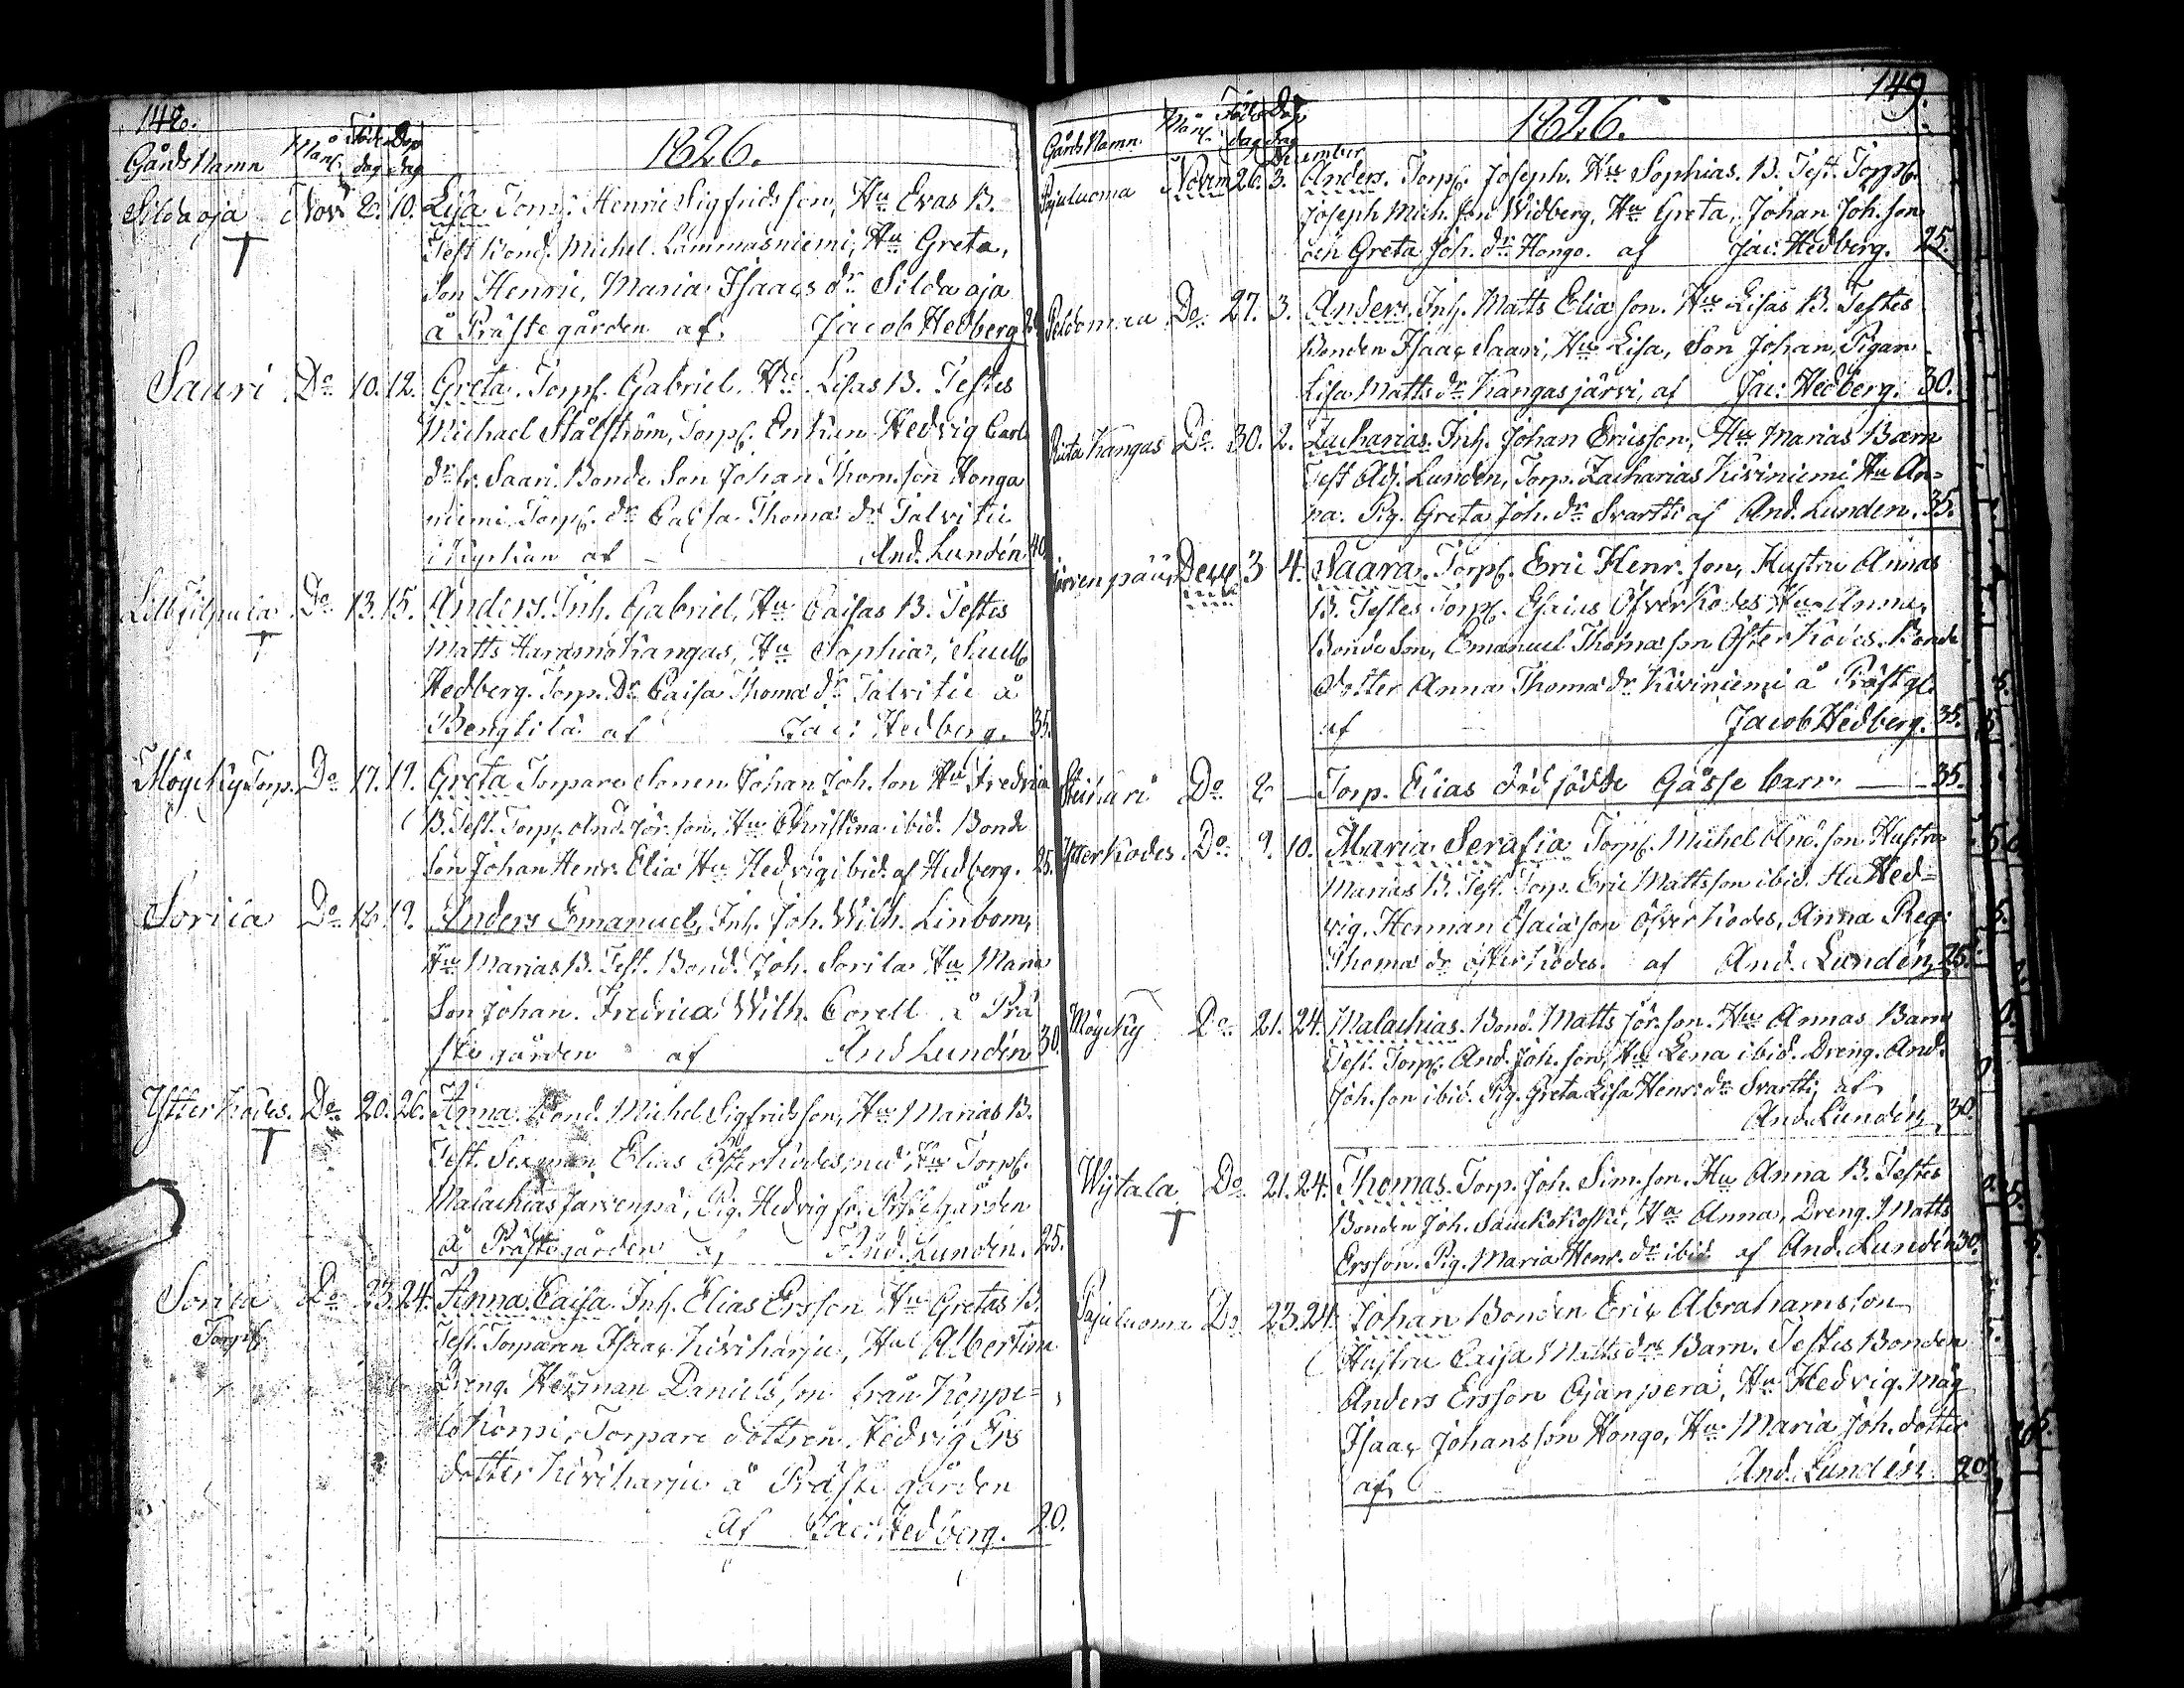 148.
Gårds Namn Mån. Föd. dag Dop dag 1826.
Silda oja Nov 8. 10. Lisa Torp. Henric Sigfrids son, Hu Evas B.
Test. Bond. Michel Lammasniemi, Hu Greta,
Son Henric, Maria Isaacs dr Silda oja
å Prästegården af. Jacob Hedberg
Sauri Do 10. 12. Greta. Torp. Gabriel, Hu Lisas B. Testes
Michael Stålström, Torp. Enkan Hedvig Carls
dr fr. Saari. Bonde Son Johan Thom. son Honga
niemi Torp. dr Caisa Thoma dr Talvitie
i Kyrkan af - And. Lundén 40
Do 13. 15. Anders. Inh. Gabriel, Hu Caisas B. Testes
Matts Haramokangas, Hu Sophia,
Hedberg. Torp. Dr Caisa Thoma dr Talvitie å
Bengtila af Jac: Hedberg. 35.
Möyeky Torp. Do 17. 19. Greta Torpare Sonen Johan Joh. son Hu Fredrica
B. Test. Torp. And. Jör. son, Hu Christina ibid. Bonde
Son Johan Henr. Elia Hu Hedvig ibid. af Hedberg. 25.
Sorila Do 18. 19. Anders Emanuel, Inh. Joh. Wilh. Linbom,
Hu Marias B. Test. Bond. Joh. Sorila Hu Maria
Son Johan. Fredrica Wilh. Corell å Prä
stegården af And Lundén 30.
Ytterkodes. Do 20. 26. Anna Bond. Michel Sigfrids son, Hu Marias B.
Test. Sexman Elias Österkodes med Hu Torp.
Malachias Jarvenpä, Pig. Hedvig fr. Prestegården
å Prästegården af And. Lundén. 25.
Sorila Torp Do 23. 24. Anna Caisa. Inh. Elias Ersson Hu Gretas B.
Test. Torparen Isaac Kiviharju, Hu Albertina
Dreng. Herman Daniels son från Konpe-
lokorpi, Torpare dottren Hedvig Ers
dotter Kiviharju å Prästegården
af Jac: Hedberg. 20.
149.
Gårds Namn. Mån. Föd. dag Dop dag 1826.
December
Pajuluoma Novem 26. 3. Anders. Torp. Joseph. Hus Sophias. B. Test. Torp.
Joseph Mich. son Widberg, Hu Greta, Johan Joh. son
och Greta Joh. dr Hongo. af Jac: Hedberg. 25.
Peldomaa Do 27. 3. Anders. Inh. Matts Elia son. Hus Lisas B. Testes
Bonden Isaac Saari, Hu Lisa, Son Johan, Pigan
Lisa Matts dr Kangasjärvi, af Jac: Hedberg. 30.
Ruta Kangas Do 30. 2. Zacharias. Inh. Johan Ericsson, Hus Marias Barn
Test Adj. Lunden, Torp. Zacharias Kiviniemi Hu An-
na. Pig. Greta Joh. dr Svartti af And. Lunden. 35.
Järvenpää Dece 3 4. Saara. Torp. Eric Henr. son, Hustru Annas
B. Testes Torp. Esaias Öfverkodes Hu Anna,
Bonde Son, Emanuel Thoma son Österkodes. Bonde
dotter Anna Thoma dr Kiviniemi å Prästg.
af Jacob Hedberg. 35.
Do 8 — Torp. Elias död födde Gåsse barn — 35.
Ytterkodes Do 9. 10. Maria Serafia Torp. Michel And. son Hustru
Marias B. Test. Torp. Eric Mattsson ibid. Hu Hed-
vig. Herman Esaia son Öfverkodes, Anna Reg:
Thoma dr Österkodes. af And. Lundén, 25.
Möyeky Do 21. 24. Malachias. Bond. Matts Jör. son. Hu Annas Barn
Test. Torp. And. Joh. son, Hu Lena ibid. Dreng. And.
Joh. son ibid. Pig. Greta Lisa Henr: dr Svartti, af
And. Lundén, 30.
Wijtala Do 21. 24. Thomas. Torp. Joh. Sim. son. Hu Anna B. Testes
Bonden Joh. Saukokoski, Hu Anna, Dreng. Matts
Ersson. Pig. Maria Henr. dr ibid. af And. Lundén 30.
Pajuluoma Do 23. 24. Johan Bonden Eric Abrahamsson
Hustru Caisa Matts drs Barn. Testes Bonden
Anders Ersson Ojanpera, Hu Hedvig. Måg
Isaac Johansson Hongo, Hu Maria Joh. dotter
af And. Lundén 20.